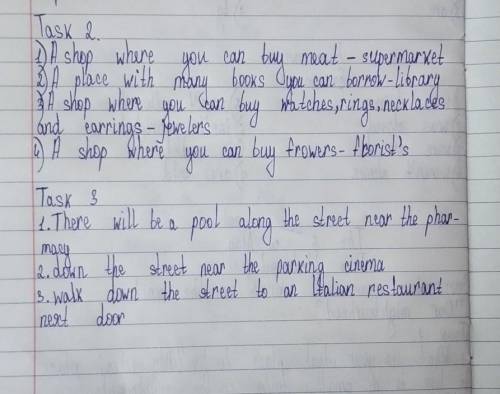 Task 2.
1) A shop where you can buy meat - supermarket
2) A place with many books you can borrow - library
3) A shop where you can buy watches, rings, necklaces
and earrings - jewelers
4) A shop where you can buy frowers - fborist's
Task 3
1. There will be a pool along the street near the phar-
macy
2. down the street near the parking cinema
3. walk down the street to an Italian restaurant
next door